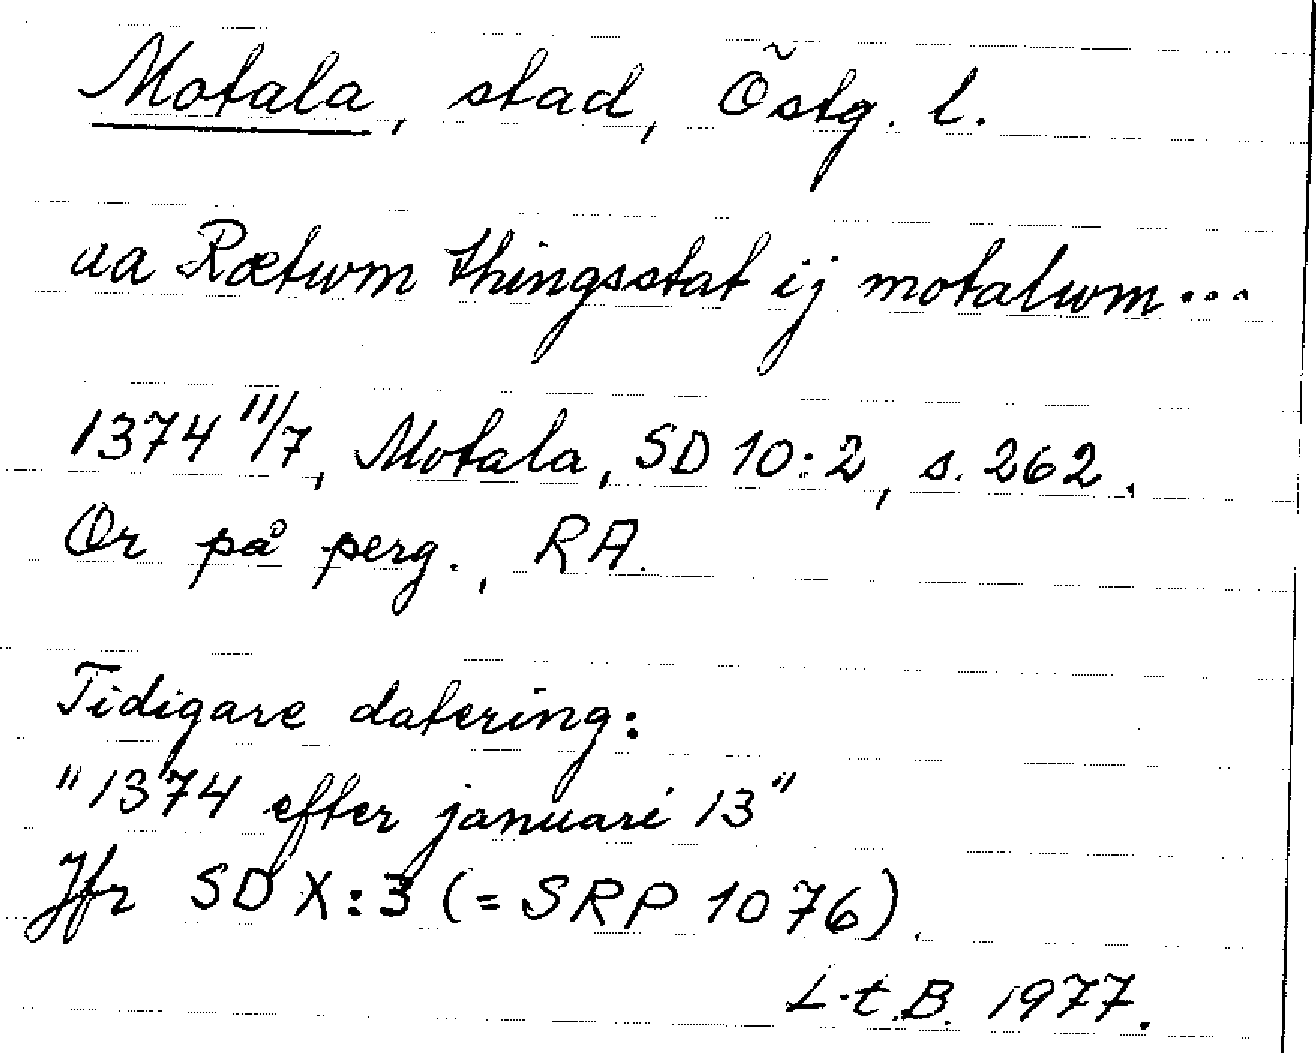 Motala, stad, Östg. l.
aa Rætwm thingsstat ij motalwm...
1374 11/7, Motala, SD 10:2, s. 262.
Or på perg., RA.
Tidigare datering:
"1374 efter januari 13"
Jfr SD X:3 (= SRP 1076).
L.t.B. 1977.